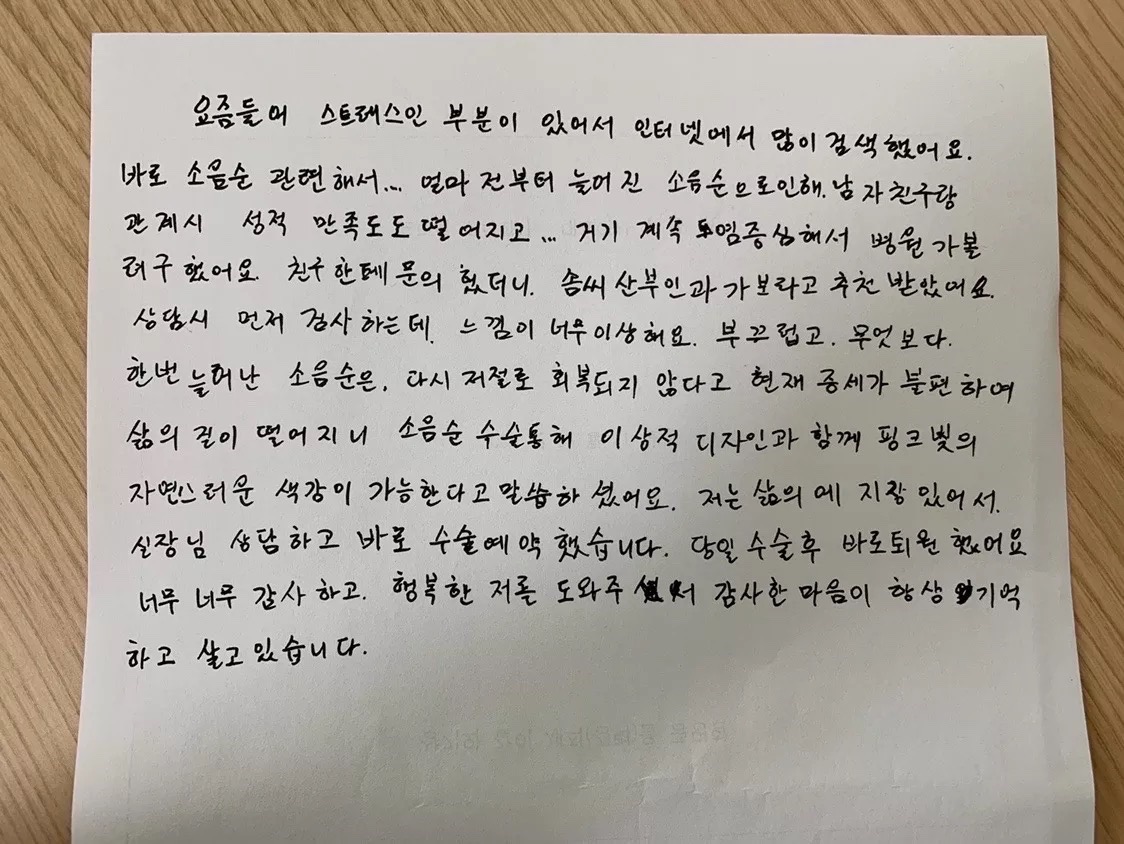 요즘들어 스트레스인 부분이 있어서 인터넷에서 많이 검색했어요.
바로 소음순 관련해서... 얼마 전부터 늘어진 소음순으로인해. 남자친구랑
관계시 성적 만족도도 떨어지고... 거기 계속 염증심해서 병원 가볼
려구 했어요. 친구한테 문의 했더니. 솜씨 산부인과 가보라고 추천 받았어요.
상담시 먼저 검사하는데. 느낌이 너무이상해요. 부끄럽고. 무엇보다.
한번 늘어난 소음순은. 다시 저절로 회복되지 않다고 현재 증세가 불편하여
삶의 질이 떨어지니 소음순 수술통해 이상적 디자인과 함께 핑크빛의
자연스러운 색감이 가능한다고 말씀하셨어요. 저는 삶의 에 지장 있어서.
실장님 상담하고 바로 수술예약했습니다. 당일 수술후 바로퇴원 했어요
너무 너무 감사하고. 행복한 저를 도와주 서 감사한 마음이 항상 기억
하고 살고있습니다.